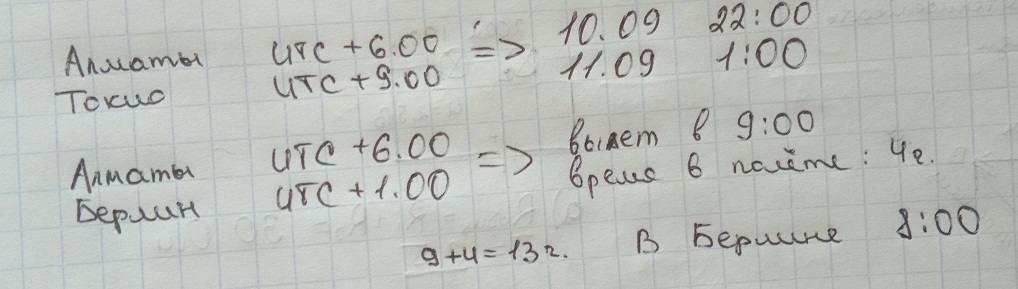 Алматы UTC +6.00 => 10.09 22:00
Токио UTC +9.00 11.09 1:00
Алматы UTC +6.00 => вылет в 9:00
Берлин UTC +1.00 время в полёте: 4г.
9+4=13г. В Берлине 8:00